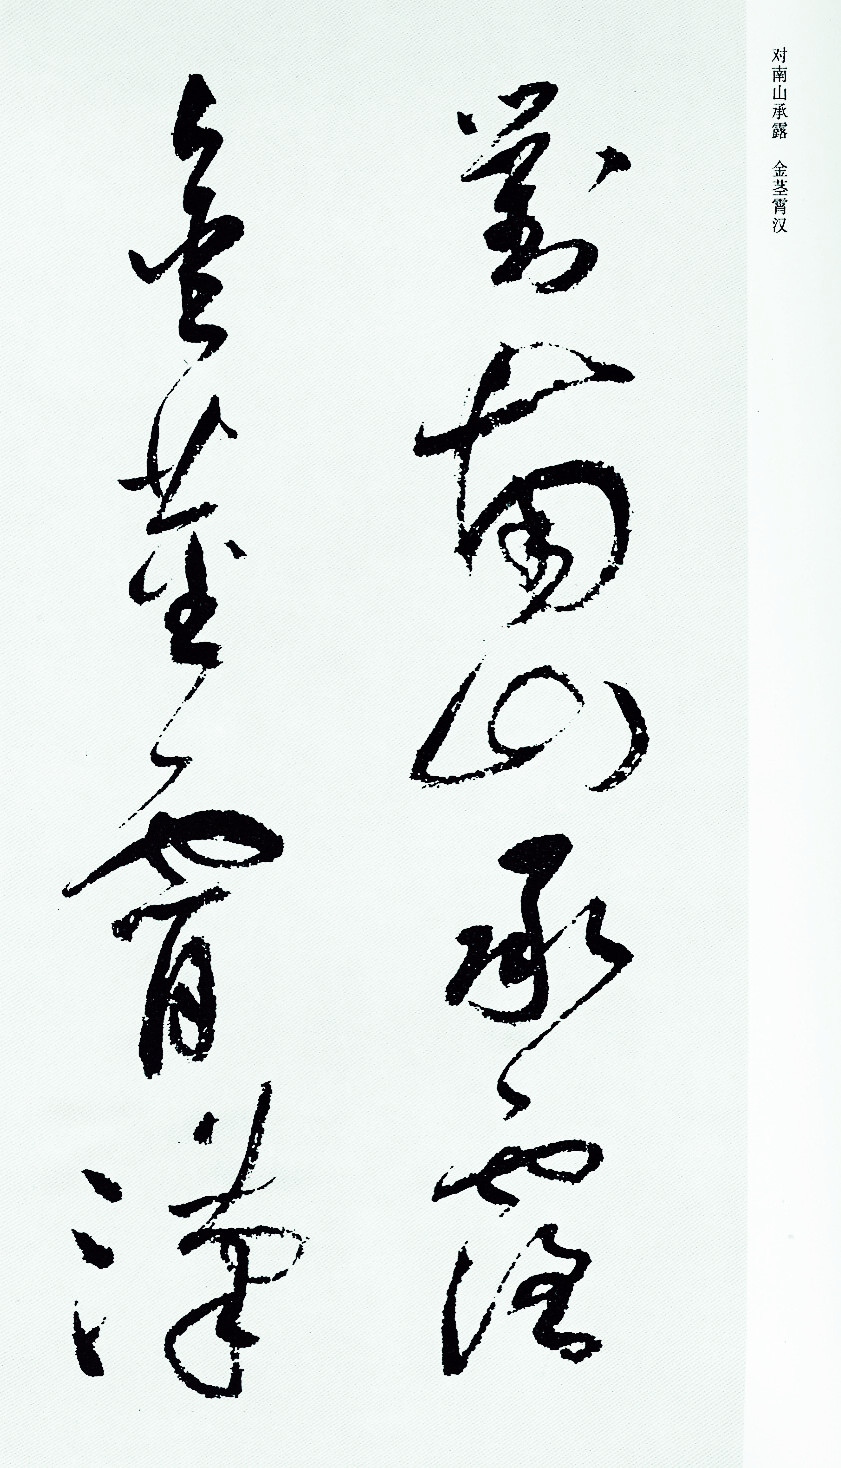 对南山承露　金茎霄汉
對南山承露
金莖霄漢